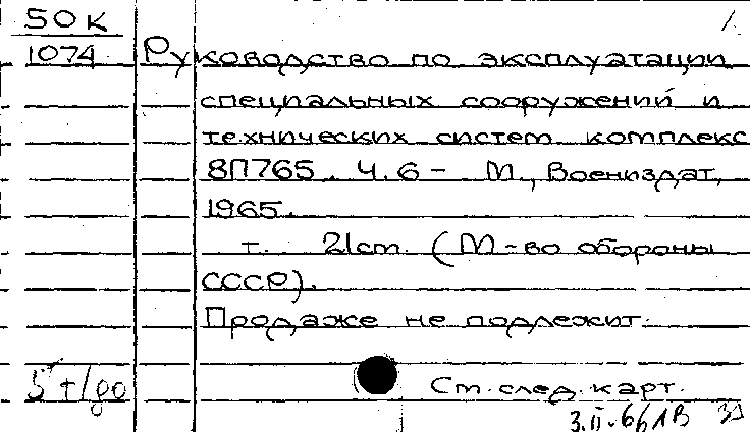 50К
1.
1074 Руководство по эксплуатации
специальных сооружений и
технических систем комплекс
8П765. Ч. 6 – М., Воениздат,
1965.
т. 21ст. (М-во обороны
СССР).
Продаже не подлежит.
См. след. карт.
3.II-66